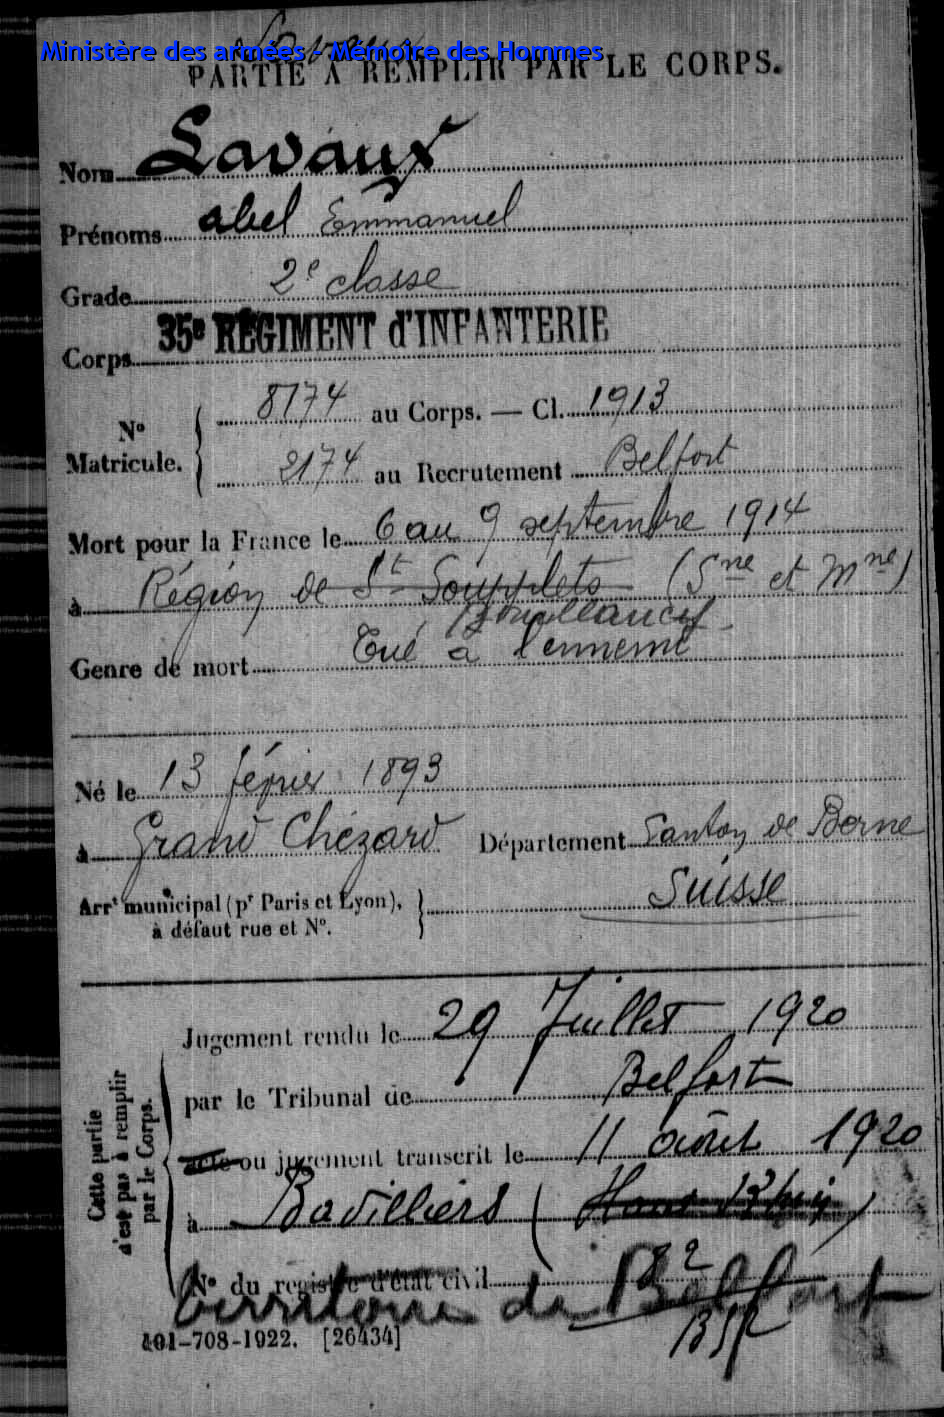 Ministère des armées - Mémoire des Hommes
PARTIE A REMPLIR PAR LE CORPS.
Nom Lavaux
Prénoms abel Emmanuel
Grade 2e classe
Corps 35e RÉGIMENT d'INFANTERIE
N° Matricule.
8174 au Corps. — Cl. 1913
2174 au Recrutement Belfort
Mort pour la France le 6 au 9 septembre 1914
à Région de St Soupplets (Sne et Mne)
Bouillancy
Genre de mort Tué à l'ennemi
Né le 13 février 1893
à Grand Chézard Département Canton de Berne
Arrt municipal (pr Paris et Lyon), à défaut rue et N°.
Suisse
Cette partie n'est pas à remplir par le Corps.
Jugement rendu le 29 Juillet 1920
par le Tribunal de Belfort
acte ou jugement transcrit le 11 août 1920
à Bavilliers (Haut Rhin)
N° du registre d'état civil 82
territoire de Belfort
101-708-1922. [26434]